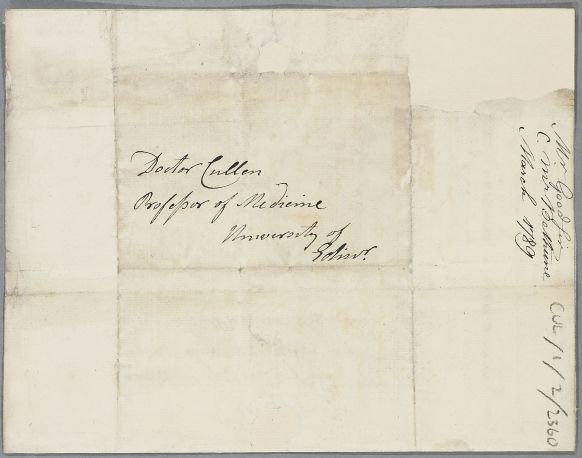 Doctor Cullen
Professor of Medicine
University of
Edinr.
Mr Goodsir
C. Mr Bethune
March 1789
CUL/1/2/2360